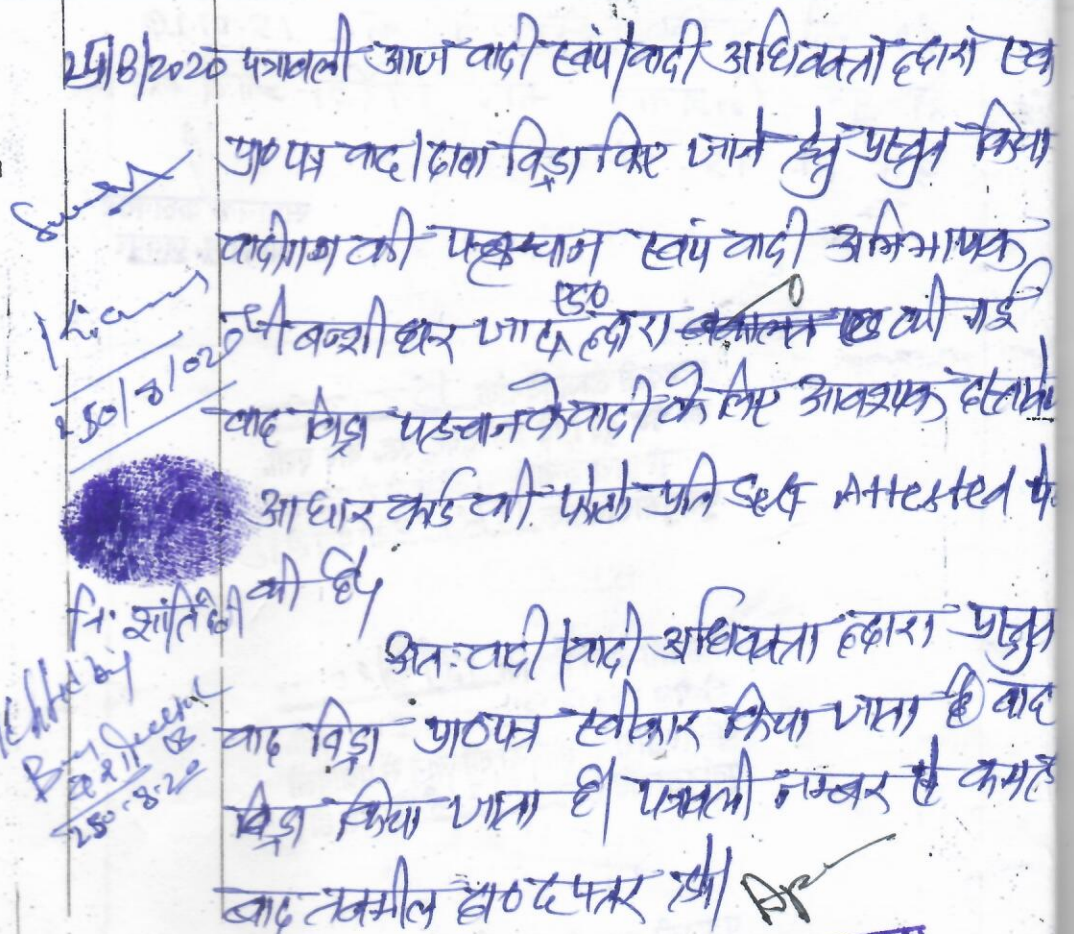 25/8/2020 पत्रावली आज वादी स्वयं/वादी अधिवक्ता द्वारा एक
प्रा०पत्र वाद/दावा विड्रा किए जाने हेतु प्रस्तुत किया
वादीगण की पहचान स्वयं वादी अभिभाषक
श्री बन्शीधर जाट एड० द्वारा की गई
वाद विड्रा पहचान के वादी के लिए आवश्यक दस्तावे
आधार कार्ड की फोटो प्रति Self Attested पे
की है।
नि. शांति देवी
अतः वादी/वादी अधिवक्ता द्वारा प्रस्तुत
वाद विड्रा प्रा०पत्र स्वीकार किया जाता है वाद
विड्रा किया जाता है। पत्रावली नम्बर से कम हो
बाद तकमील दा० दफ्तर हो।
25-8-20